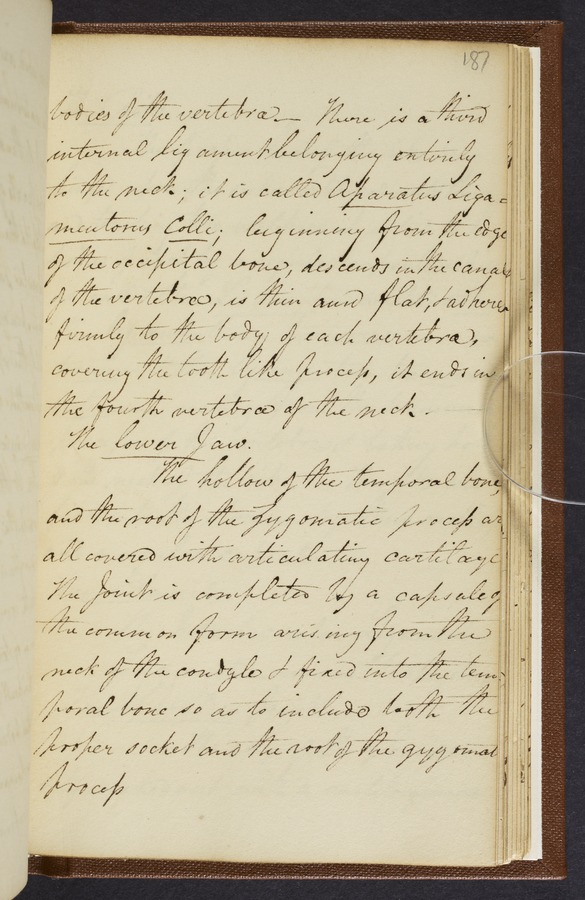 187
bodies of the vertebra — There is a third
internal lig ament belonging entirely
to the neck; it is called Aparatus Liga=
mentorus Colli; beginning from the edge
of the occipital bone, descends in the canal
of the vertebra, is thin and flat, & adheres
firmly to the body of each vertebra,
covering the tooth like process, it ends in
the fourth vertebra of the neck.
The lower Jaw.
The hollow of the temporal bone,
and the root of the zygomatic process ar
all covered with articulating cartilage
The Joint is completed by a capsule of
the common form arising from the
neck of the condyle & fixed into the tem
poral bone so as to include both the
proper socket and the root of the zygomat
process